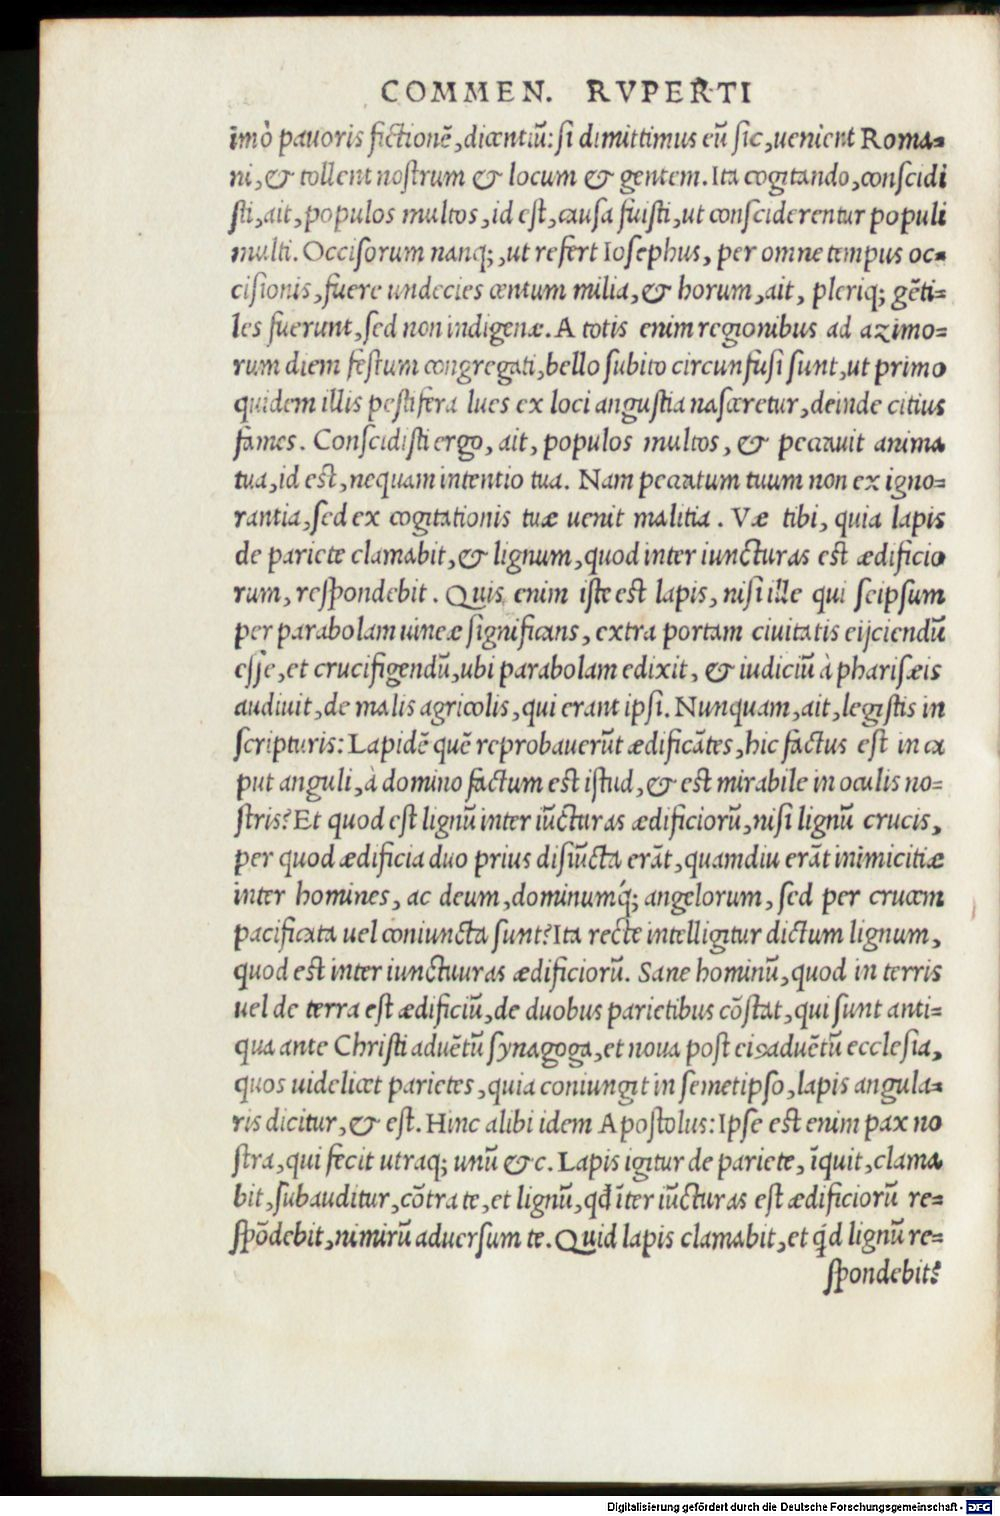 COMMEN. RVPERTI
īmò pauoris fictionē, dicentiū: si dimittimus eū sic, uenient Roma=
ni, & tollent nostrum & locum & gentem. Ita cogitando, conscidi
sti, ait, populos multos, id est, causa fuisti, ut conscinderentur populi
multi. Occisorum nanq;, ut refert Iosephus, per omne tempus oc=
cisionis, fuere undecies centum milia, & horum, ait, pleriq; gēti=
les fuerunt, sed non indigenæ. A totis enim regionibus ad azimo=
rum diem festum congregati, bello subito circunfusi sunt, ut primo
quidem illis pestifera lues ex loci angustia nasceretur, deinde citius
fames. Conscidisti ergo, ait, populos multos, & peccauit anima
tua, id est, nequam intentio tua. Nam peccatum tuum non ex igno=
rantia, sed ex cogitationis tuæ uenit malitia. Væ tibi, quia lapis
de pariete clamabit, & lignum, quod inter iuncturas est ædificio
rum, respondebit. Quis enim iste est lapis, nisi ille qui seipsum
per parabolam uineæ significans, extra portam ciuitatis eijciendū
esse, et crucifigendū, ubi parabolam edixit, & iudiciū à pharisæis
audiuit, de malis agricolis, qui erant ipsi. Nunquam, ait, legistis in
scripturis: Lapidē quē reprobauerūt ædificātes, hic factus est in ca
put anguli, à domino factum est istud, & est mirabile in oculis no=
stris? Et quod est lignū inter iūcturas ædificiorū, nisi lignū crucis,
per quod ædificia duo prius disiūcta erāt, quamdiu erāt inimicitiæ
inter homines, ac deum, dominumq́; angelorum, sed per crucem
pacificata uel coniuncta sunt? Ita recte intelligitur dictum lignum,
quod est inter iunctuuras ædificiorū. Sane hominū, quod in terris
uel de terra est ædificiū, de duobus parietibus cōstat, qui sunt anti=
qua ante Christi aduētū synagoga, et noua post eiꝰ aduētū ecclesia,
quos uidelicet parietes, quia coniungit in semetipso, lapis angula=
ris dicitur, & est. Hinc alibi idem Apostolus: Ipse est enim pax no
stra, qui fecit utraq; unū &c. Lapis igitur de pariete, īquit, clama
bit, subauditur, cōtra te, et lignū, qđ īter iūcturas est ædificiorū re=
spōdebit, nimirū aduersum te. Quid lapis clamabit, et qd́ lignū re=
spondebit?
Digitalisierung gefördert durch die Deutsche Forschungsgemeinschaft - DFG